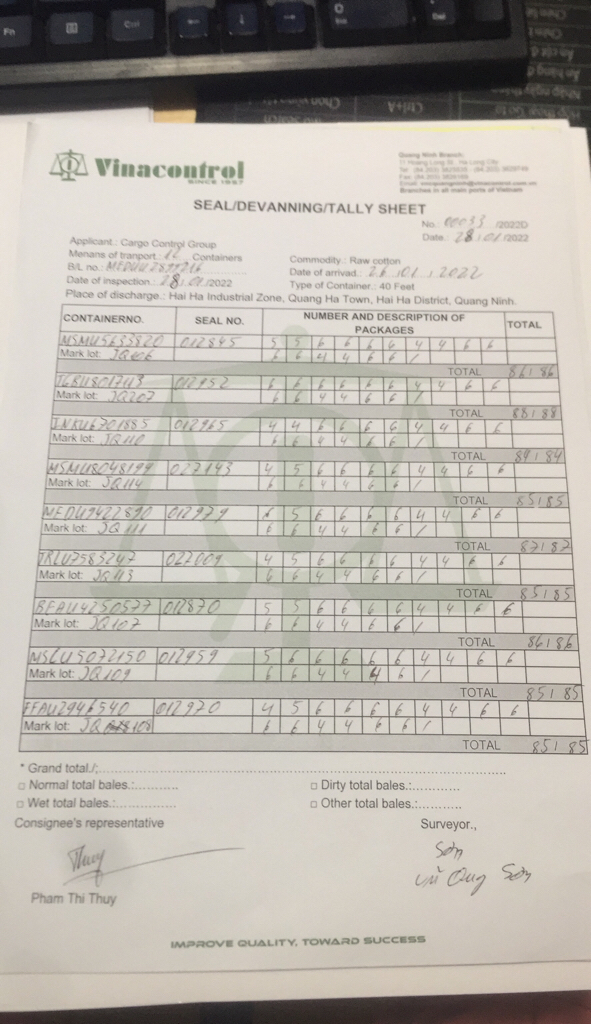 Vinacontrol
SINCE 1957
Quang Ninh Branch:
11 Hoang Long St., Ha Long City
Branches in all main ports of Vietnam
SEAL/DEVANNING/TALLY SHEET
No.: 00033 /2022D
Date.: 28/01/2022
Applicant.: Cargo Control Group
Menans of tranport.: Containers
Commodity.: Raw cotton
B/L no.:
Date of arrivad.: 26.01.2022
Date of inspection.: 28/01/2022
Type of Container.: 40 Feet
Place of discharge.: Hai Ha Industrial Zone, Quang Ha Town, Hai Ha District, Quang Ninh.
CONTAINERNO. SEAL NO. NUMBER AND DESCRIPTION OF PACKAGES TOTAL
MSMU5635820 012845 5 5 6 6 6 6 4 4 6 6
Mark lot: JQ106 6 6 4 4 6 6 /
TOTAL 86/86
012952 6 6 6 6 6 6 4 4 6 6
Mark lot: JQ207 6 6 4 4 6 6 /
TOTAL 88/88
INKU6701885 012965 4 4 6 6 6 6 4 4 6 6
Mark lot: JQ110 6 6 4 4 6 6 /
TOTAL 84/84
MSMU8048199 027143 4 5 6 6 6 6 4 4 6 6
Mark lot: JQ114 6 6 4 4 6 6 /
TOTAL 85/85
MEDU9422890 012979 6 5 6 6 6 6 4 4 6 6
Mark lot: JQ111 6 6 4 4 6 6 /
TOTAL 87/87
TRLU7583247 027009 4 5 6 6 6 6 4 4 6 6
Mark lot: JQ113 6 6 4 4 6 6 /
TOTAL 85/85
BEAU4250577 012870 5 5 6 6 6 6 4 4 6 6
Mark lot: JQ107 6 6 4 4 6 6 /
TOTAL 86/86
MSCU5072150 012959 5 6 6 6 6 6 4 4 6 6
Mark lot: JQ109 6 6 4 4 4 6 /
TOTAL 85/85
FFAU2946540 012970 4 5 6 6 6 6 4 4 6 6
Mark lot: JQ 108 6 6 4 4 6 6 /
TOTAL 85/85
* Grand total./:
□ Normal total bales.: □ Dirty total bales.:
□ Wet total bales.: □ Other total bales.:
Consignee's representative Surveyor.,
Thuy Sơn
Pham Thi Thuy Sơn
IMPROVE QUALITY, TOWARD SUCCESS